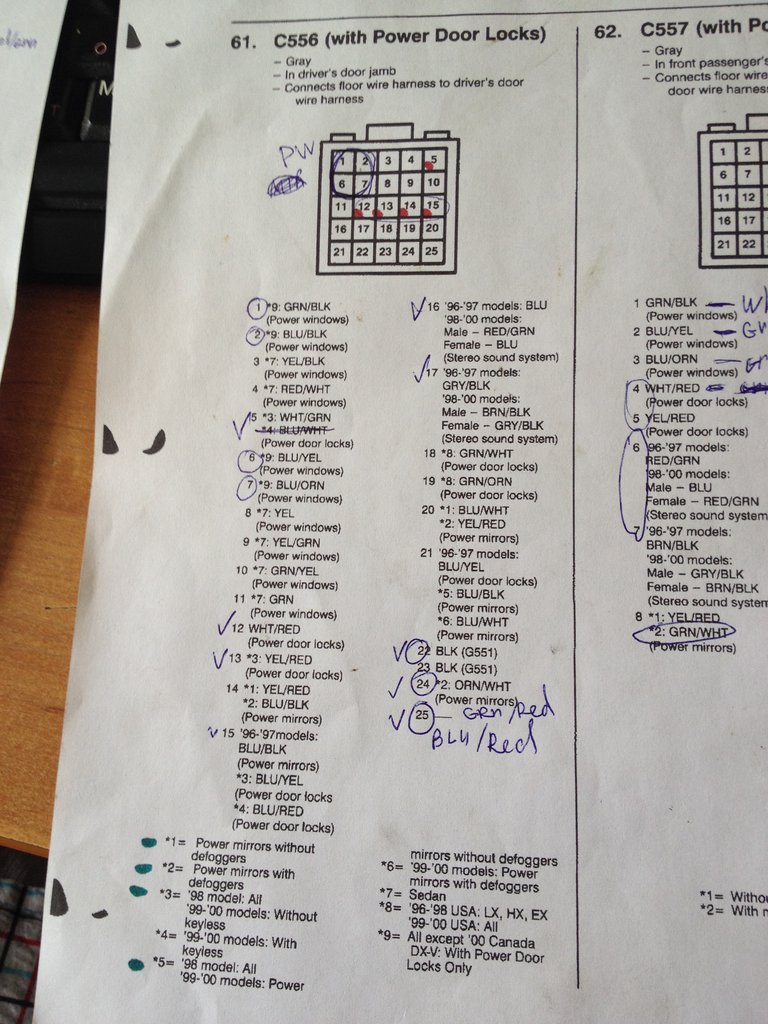 61. C556 (with Power Door Locks)
– Gray
– In driver's door jamb
– Connects floor wire harness to driver's door
wire harness
PW
1 2 3 4 5
6 7 8 9 10
11 12 13 14 15
16 17 18 19 20
21 22 23 24 25
1 *9: GRN/BLK
(Power windows)
2 *9: BLU/BLK
(Power windows)
3 *7: YEL/BLK
(Power windows)
4 *7: RED/WHT
(Power windows)
5 *3: WHT/GRN
*4: BLU/WHT
(Power door locks)
6 *9: BLU/YEL
(Power windows)
7 *9: BLU/ORN
(Power windows)
8 *7: YEL
(Power windows)
9 *7: YEL/GRN
(Power windows)
10 *7: GRN/YEL
(Power windows)
11 *7: GRN
(Power windows)
12 WHT/RED
(Power door locks)
13 *3: YEL/RED
(Power door locks)
14 *1: YEL/RED
*2: BLU/BLK
(Power mirrors)
15 '96-'97models:
BLU/BLK
(Power mirrors)
*3: BLU/YEL
(Power door locks
*4: BLU/RED
(Power door locks)
16 '96-'97 models: BLU
'98-'00 models:
Male – RED/GRN
Female – BLU
(Stereo sound system)
17 '96-'97 models:
GRY/BLK
'98-'00 models:
Male – BRN/BLK
Female – GRY/BLK
(Stereo sound system)
18 *8: GRN/WHT
(Power door locks)
19 *8: GRN/ORN
(Power door locks)
20 *1: BLU/WHT
*2: YEL/RED
(Power mirrors)
21 '96-'97 models:
BLU/YEL
(Power door locks)
*5: BLU/BLK
(Power mirrors)
*6: BLU/WHT
(Power mirrors)
22 BLK (G551)
23 BLK (G551)
24 *2: ORN/WHT
(Power mirrors)
25 – GRN/Red
BLU/Red
*1= Power mirrors without
defoggers
*2= Power mirrors with
defoggers
*3= '98 model: All
'99-'00 models: Without
keyless
*4= '99-'00 models: With
keyless
*5= '98 model: All
'99-'00 models: Power
mirrors without defoggers
*6= '99-'00 models: Power
mirrors with defoggers
*7= Sedan
*8= '96-'98 USA: LX, HX, EX
'99-'00 USA: All
*9= All except '00 Canada
DX-V: With Power Door
Locks Only
62. C557 (with
– Gray
– In front passenger's
– Connects floor wire
door wire
1 2
6 7
11 12
16 17
21 22
1 GRN/BLK
(Power windows)
2 BLU/YEL
(Power windows)
3 BLU/ORN
(Power windows)
4 WHT/RED
(Power door locks)
5 YEL/RED
(Power door locks)
6 '96-'97 models:
RED/GRN
'98-'00 models:
Male – BLU
Female – RED/GRN
(Stereo sound system
7 '96-'97 models:
BRN/BLK
'98-'00 models:
Male – GRY/BLK
Female – BRN/BLK
(Stereo sound
8 *1: YEL/RED
*2: GRN/WHT
(Power mirrors)
*1=
*2=